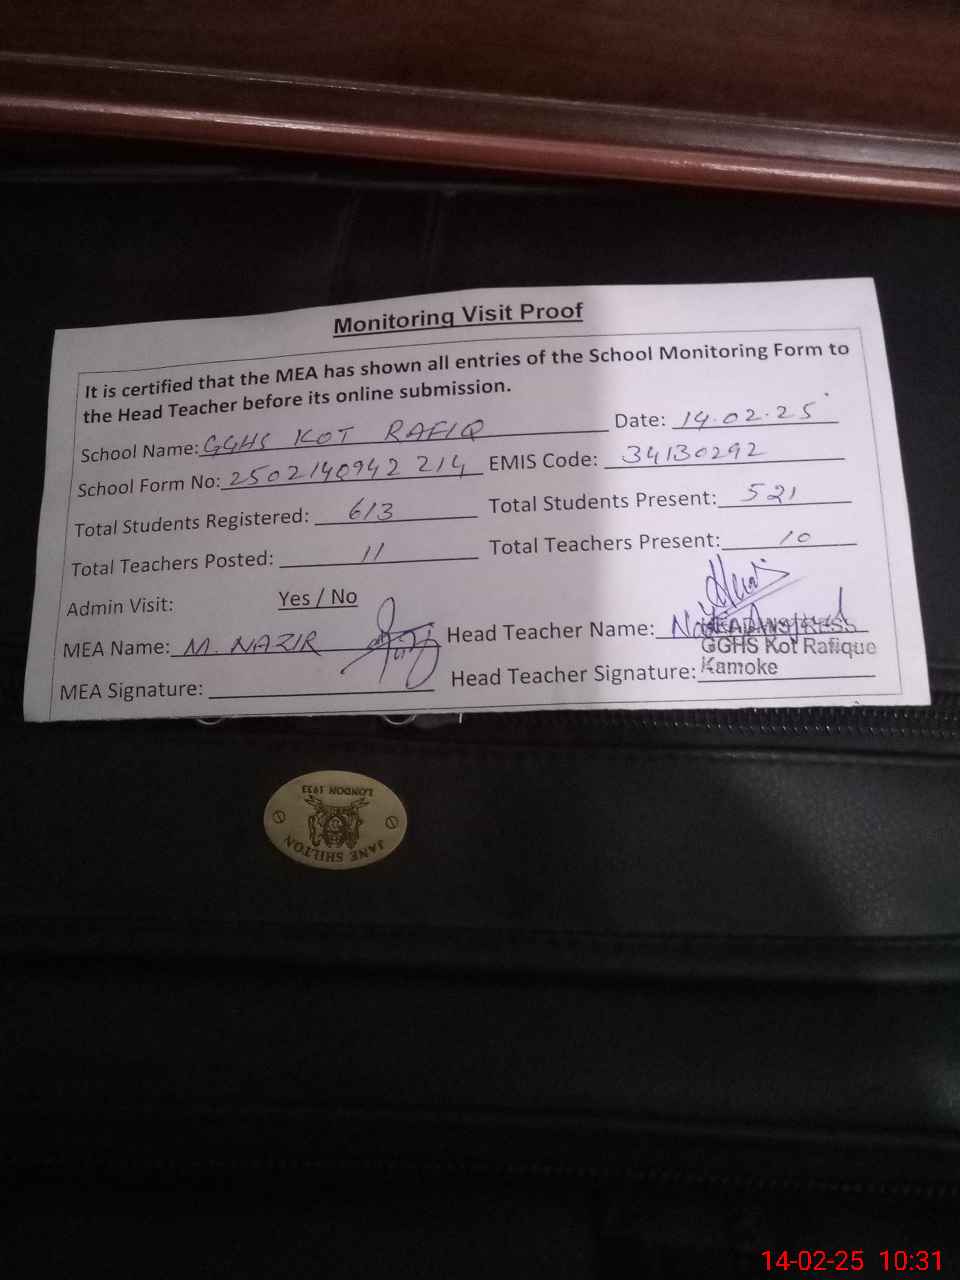 Monitoring Visit Proof
It is certified that the MEA has shown all entries of the School Monitoring Form to
the Head Teacher before its online submission.
School Name: GGHS KOT RAFIQ Date: 14.02.25
School Form No: 2502140942 214 EMIS Code: 34130292
Total Students Registered: 613 Total Students Present: 521
Total Teachers Posted: 11 Total Teachers Present: 10
Admin Visit: Yes / No
MEA Name: M. NAZIR Head Teacher Name:
HEADMISTRESS
GGHS Kot Rafique
MEA Signature: Head Teacher Signature: Kamoke
LONDON 1933
JANE SHILTON
14-02-25 10:31